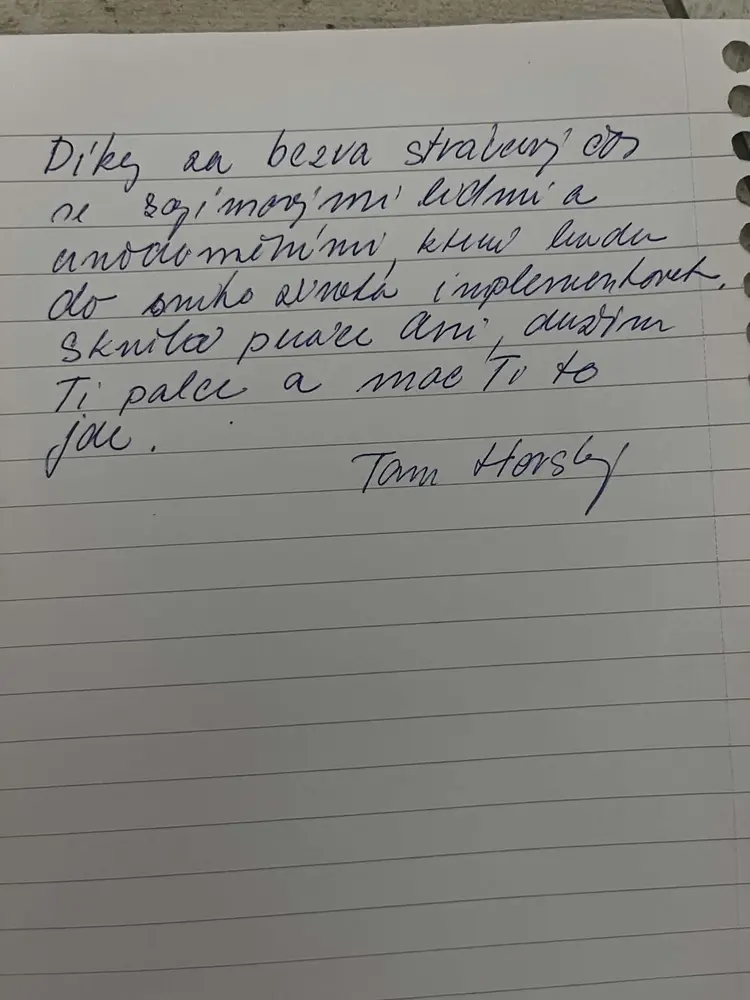 Díky za bezva strávený čas
se zajímavými lidmi a
uvědoměními, které budu
do svého života implementovat.
Skvělá práce Ani, držím
Ti palce a moc Ti to
jde.
Tom Horský